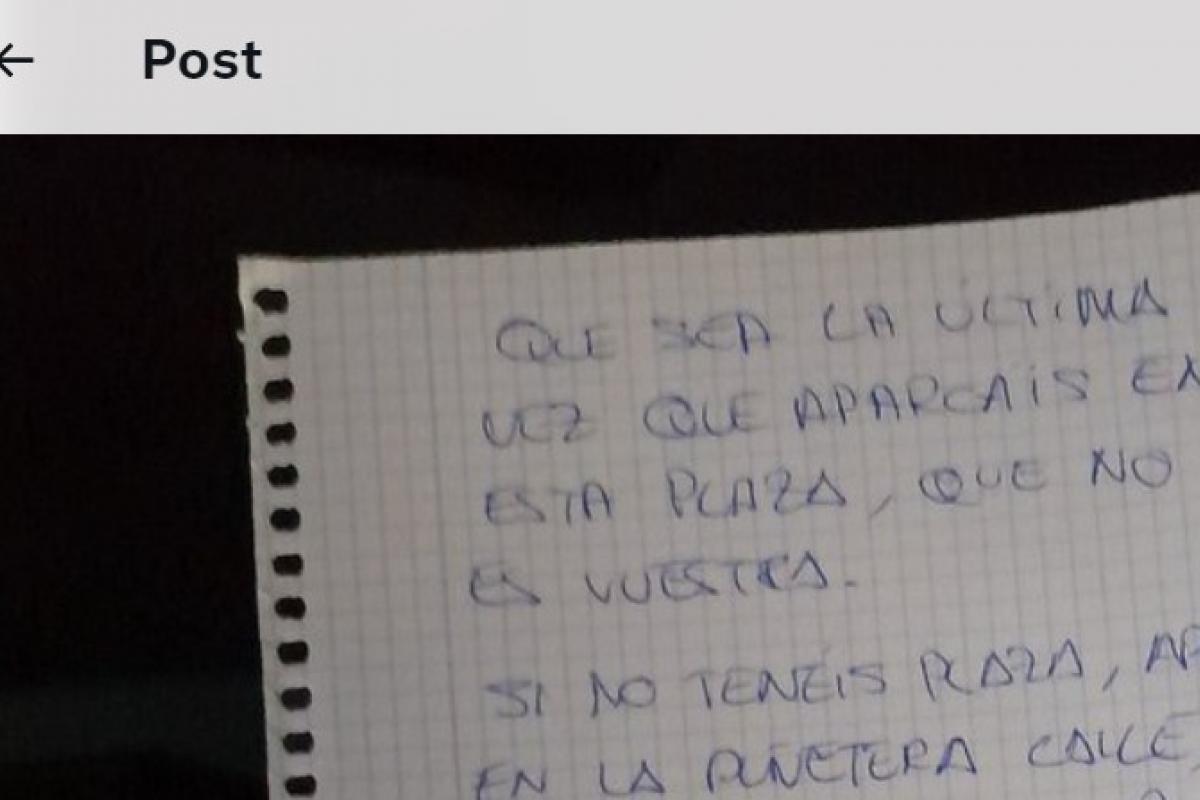 Post
QUE SEA LA ÚLTIMA
VEZ QUE APARCAIS EN
ESTA PLAZA, QUE NO
ES VUESTRA.
SI NO TENEIS PLAZA, AP
EN LA PUÑETERA CALLE,